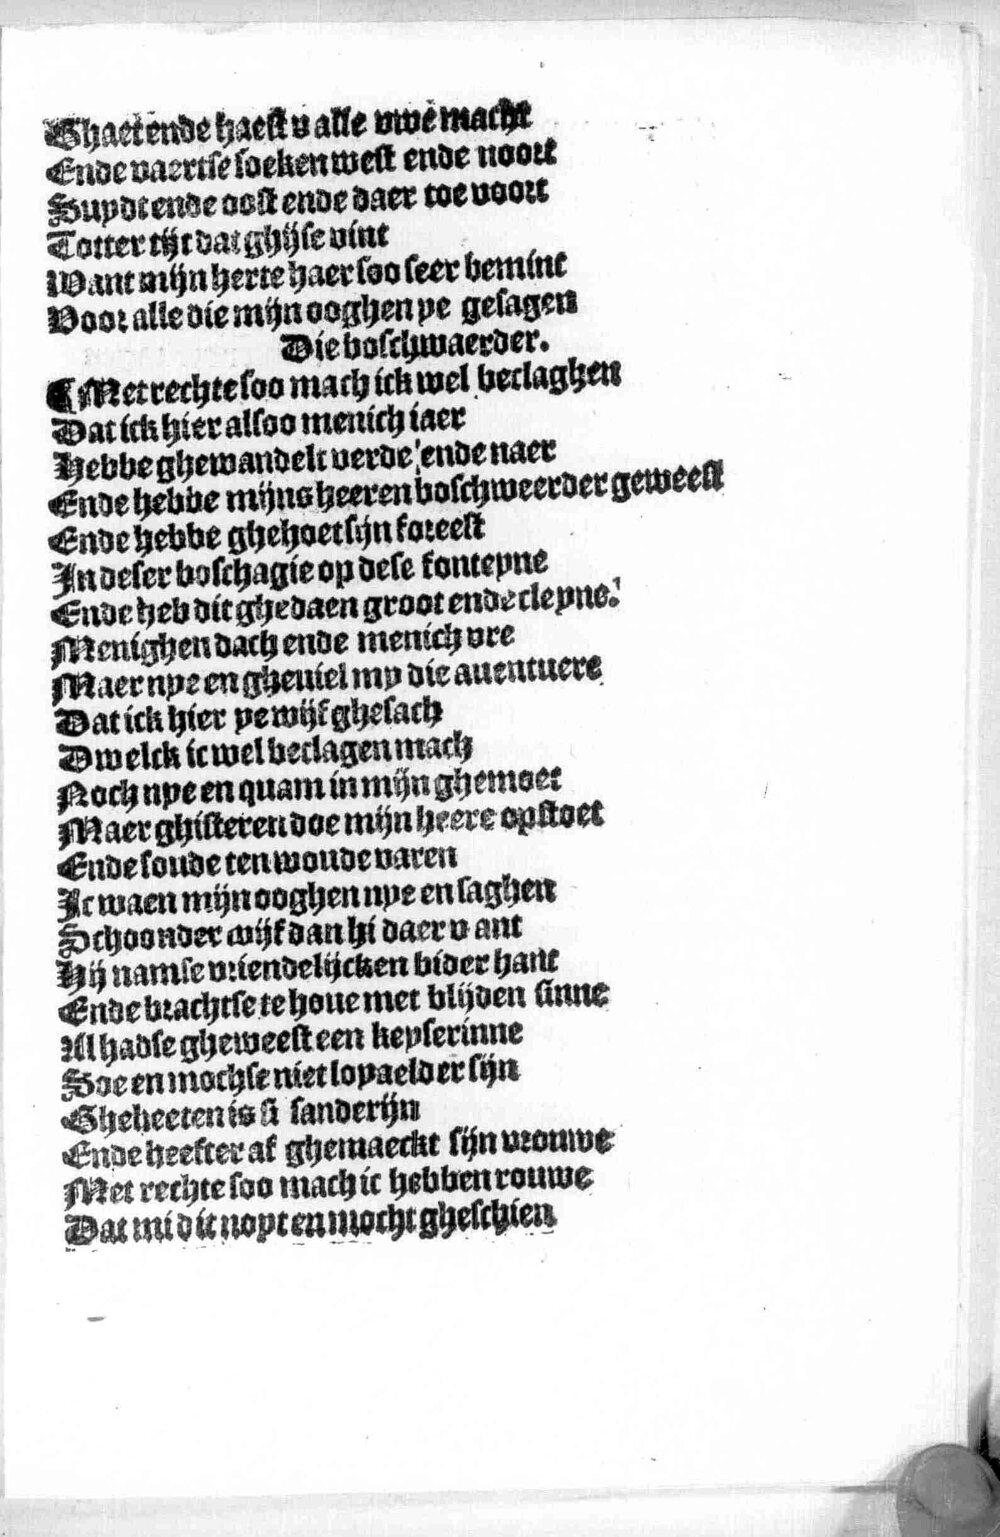 Ghaet ende haest v alle vwe macht
Ende vaertse soeken west ende noort
Suydt ende oost ende daer toe voort
Totter tijt dat ghijse vint
Want mijn herte haer soo seer bemint
Voor alle die mijn ooghen ye gesagen
Die boschwaerder.
¶ Met rechte soo mach ick wel beclaghen
Dat ick hier alsoo menich iaer
Hebbe ghewandelt verde ende naer
Ende hebbe mijns heeren boschweerder geweest
Ende hebbe ghehoet sijn foreest
In deser boschagie op dese fonteyne
Ende heb dit ghedaen groot ende cleyne.
Menighen dach ende menich vre
Maer nye en gheuiel my die auentuere
Dat ick hier ye wijf ghesach
Dwelck ic wel beclagen mach
Noch nye en quam in mijn ghemoet
Maer ghisteren doe mijn heere opstoet
Ende soude ten woude varen
Ic waen mijn ooghen nye en saghen
Schoonder wijf dan hi daer vant
Hij namse vriendelijcken bider hant
Ende brachtse te houe met blijden sinne
Al hadse gheweest een keyserinne
Soe en mochse niet loyaelder sijn
Gheheeten is si sanderijn
Ende heefter af ghemaeckt sijn vrouwe
Met rechte soo mach ic hebben rouwe
Dat mi dit noyt en mocht gheschien